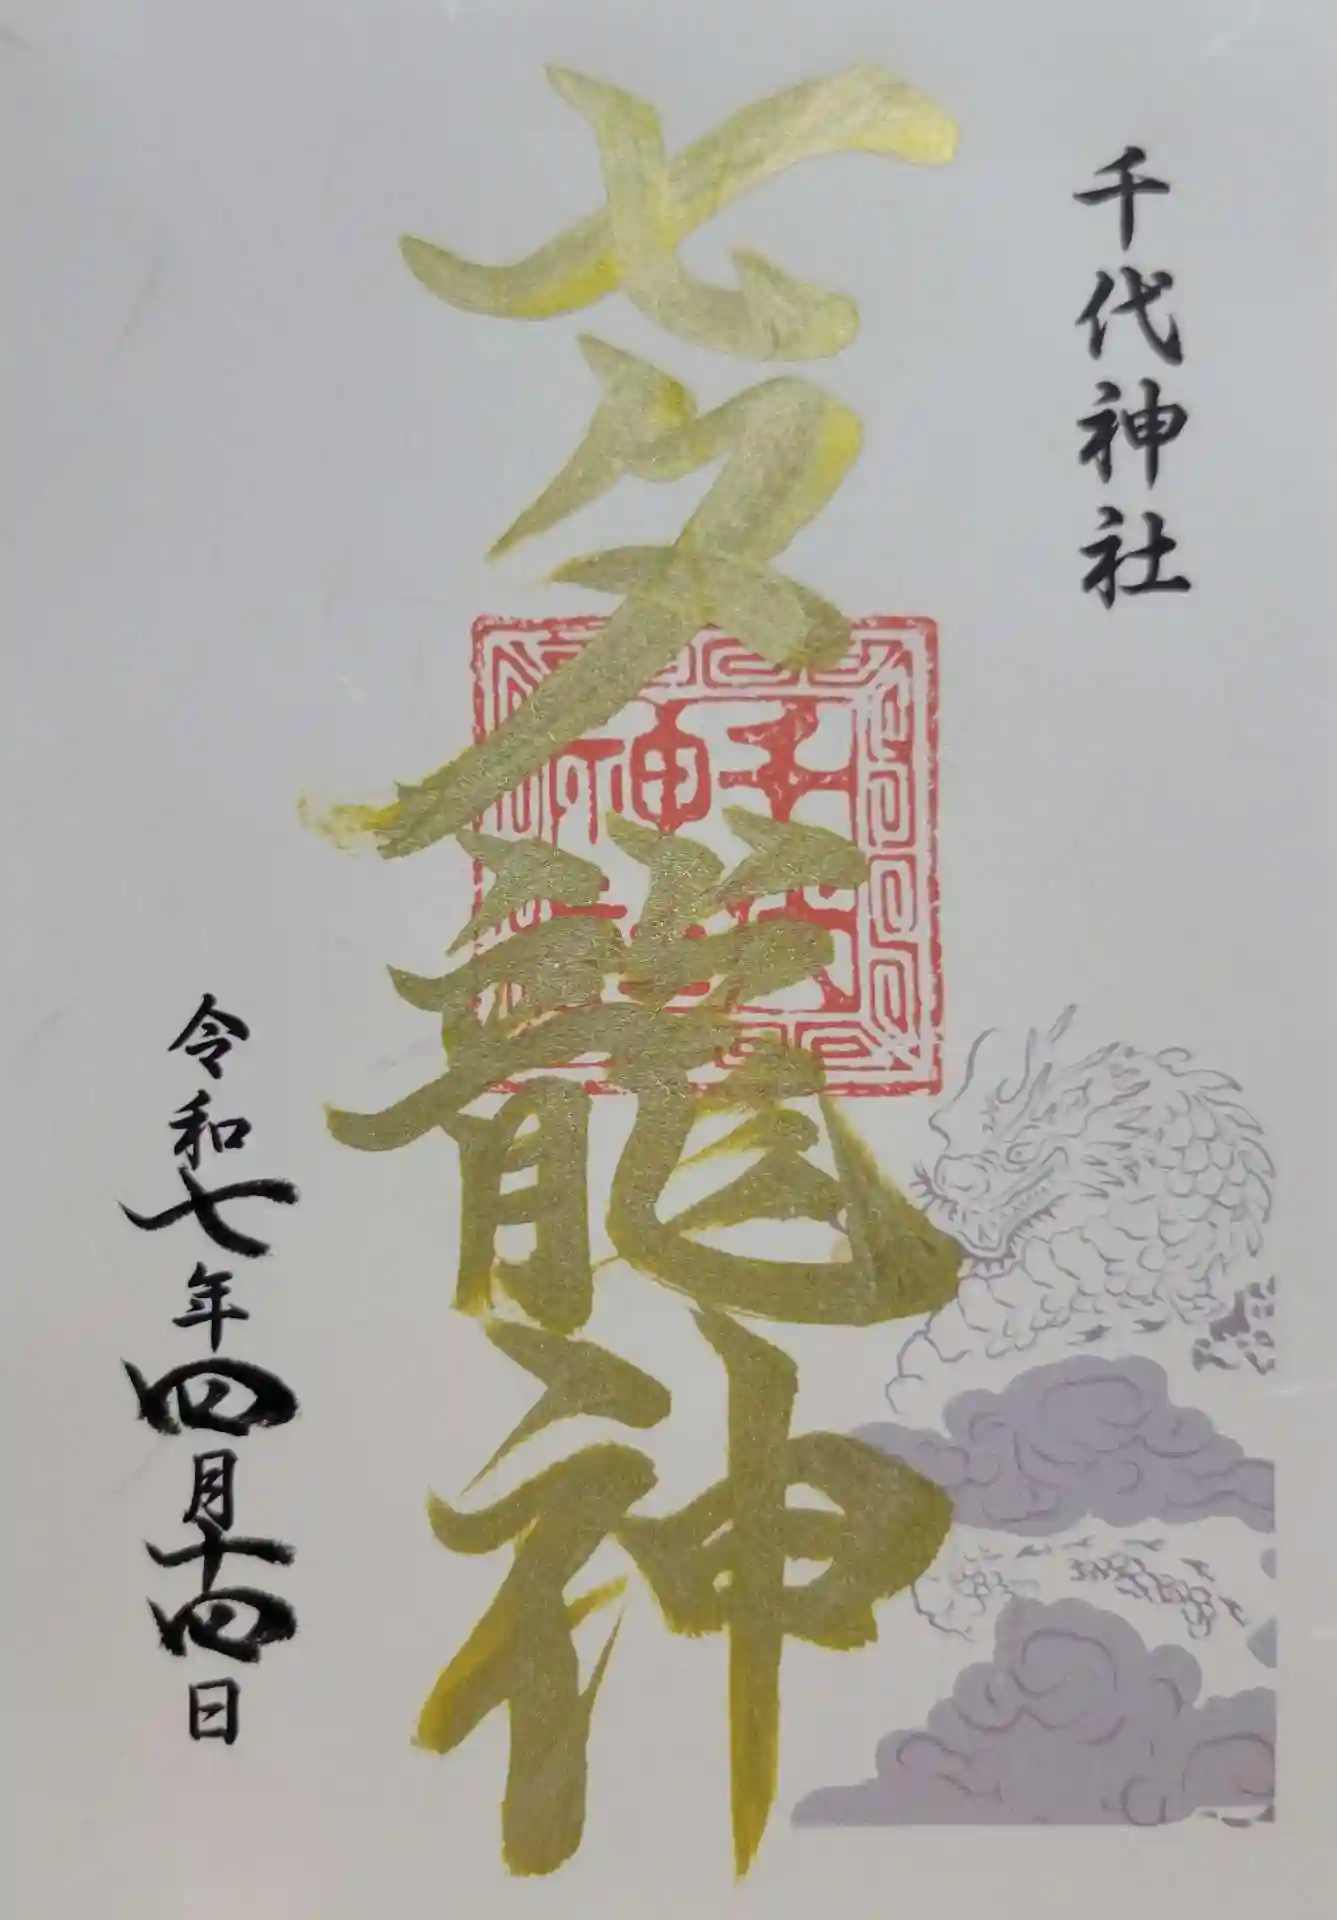 千代神社
七夕龍神
千代
神社
令和七年四月十四日